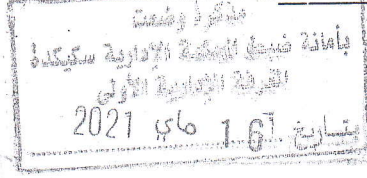 مذكرة وضعت
بأمانة ضبط المحكمة الإدارية سكيكدة
الغرفة الإدارية الأولى
بتاريخ 16 ماي 2021